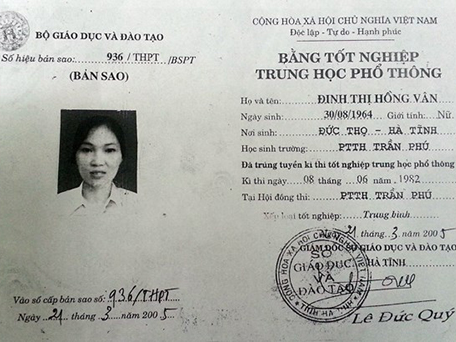 BỘ GIÁO DỤC VÀ ĐÀO TẠO
Số hiệu bản sao: 936/THPT /BSPT
(BẢN SAO)
Vào sổ cấp bản sao số: 936/THPT
Ngày 21 tháng 3 năm 2005
CỘNG HÒA XÃ HỘI CHỦ NGHĨA VIỆT NAM
Độc lập - Tự do - Hạnh phúc
BẰNG TỐT NGHIỆP
TRUNG HỌC PHỔ THÔNG
Họ và tên: ĐINH THỊ HỒNG VÂN
Ngày sinh: 30/08/1964 Giới tính: Nữ
Nơi sinh: ĐỨC THỌ - HÀ TĨNH
Học sinh trường: PTTH TRẦN PHÚ
Đã trúng tuyển kì thi tốt nghiệp trung học phổ thông
Kì thi ngày 08 tháng 06 năm 1982
Tại Hội đồng thi: PTTH TRẦN PHÚ
Xếp loại tốt nghiệp: Trung bình
21 tháng 3 năm 2005
GIÁM ĐỐC SỞ GIÁO DỤC VÀ ĐÀO TẠO
HÀ TĨNH
SỞ
GIÁO DỤC
VÀ
ĐÀO TẠO
CỘNG HÒA XÃ HỘI CHỦ NGHĨA VIỆT NAM
TỈNH HÀ TĨNH
Lê Đức Quý